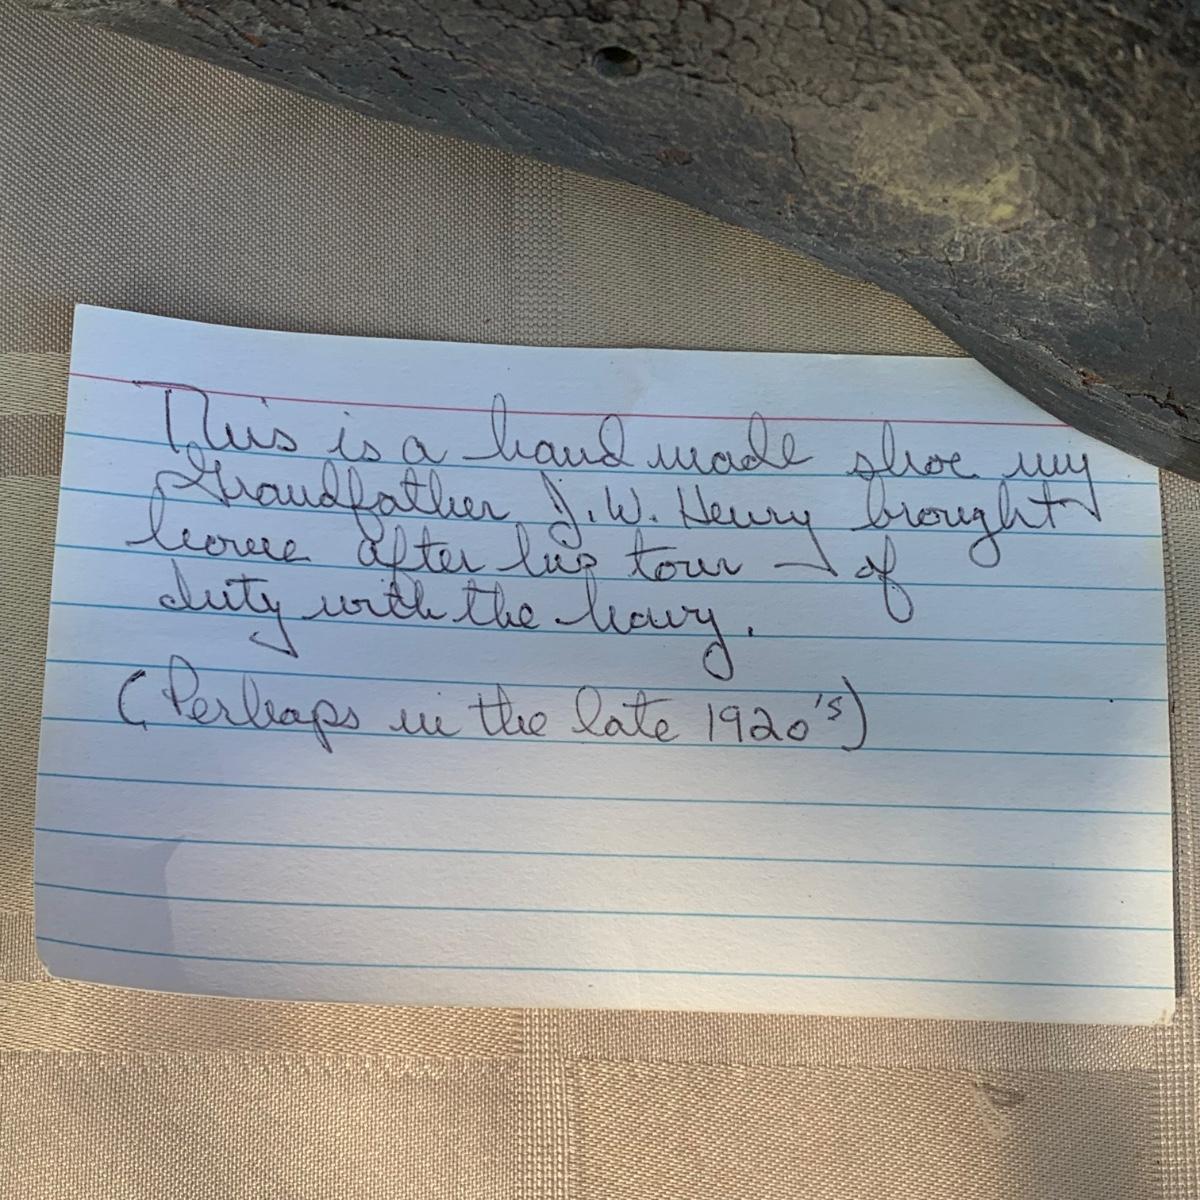 This is a hand made shoe my
Grandfather J.W. Henry brought
home after his tour of
duty with the Navy.
(Perhaps in the late 1920's)